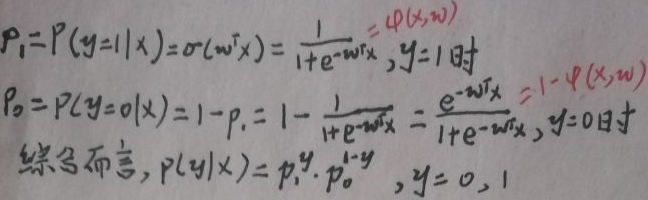 P₁=P(y=1|x)=σ(wᵀx)= 1/(1+e^{-wᵀx}) =φ(x,w) ,y=1时
P₀=P(y=0|x)=1-p₁=1- 1/(1+e^{-wᵀx}) = e^{-wᵀx}/(1+e^{-wᵀx}) =1-φ(x,w) ,y=0时
综合而言,p(y|x)=p₁^y·p₀^{1-y} ,y=0,1